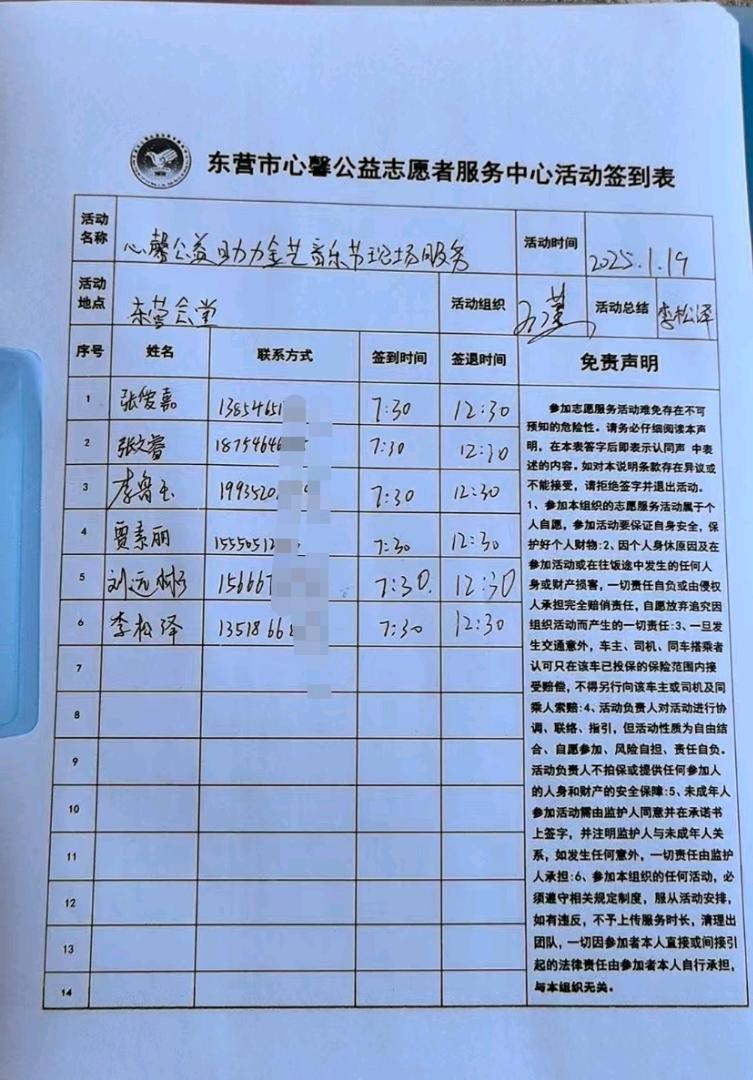 东营市心馨公益志愿者服务中心活动签到表
活动名称 心馨公益助力金艺音乐节现场服务 活动时间 2025.1.19
活动地点 东营会堂 活动组织 活动总结 李松泽
序号 姓名 联系方式 签到时间 签退时间 免责声明
1 张俊嘉 13854651 7:30 12:30
2 张文睿 18754646 7:30 12:30
3 李鲁玉 1993520 7:30 12:30
4 贾素丽 15550512 7:30 12:30
5 刘远彬 156667 7:30 12:30
6 李松泽 1351866 7:30 12:30
7
8
9
10
11
12
13
14
参加志愿服务活动难免存在不可
预知的危险性。请务必仔细阅读本声
明，在本表签字后即表示认同声 中表
述的内容。如对本说明条款存在异议或
不能接受，请拒绝签字并退出活动。
1、参加本组织的志愿服务活动属于个
人自愿，参加活动要保证自身安全，保
护好个人财物:2、因个人身休原因及在
参加活动或在往饭途中发生的任何人
身或财产损害，一切责任自负或由侵权
人承担完全赔销责任，自愿放弃追究因
组织活动而产生的一切责任:3、一旦发
生交通意外，车主、司机、同车搭乘者
认可只在该车已投保的保险范围内接
受赔偿，不得另行向该车主或司机及同
乘人索赔:4、活动负责人对活动进行协
调、联络、指引，但活动性质为自由结
合、自愿参加、风险自担、责任自负。
活动负责人不拍保或提供任何参加人
的人身和财产的安全保障:5、未成年人
参加活动需由监护人同意并在承诺书
上签字，并注明监护人与未成年人关
系，如发生任何意外，一切责任由监护
人承担:6、参加本组织的任何活动，必
须遵守相关规定制度，服从活动安排，
如有违反，不予上传服务时长，清理出
团队，一切因参加者本人直接或间接引
起的法律责任由参加者本人自行承担，
与本组织无关。